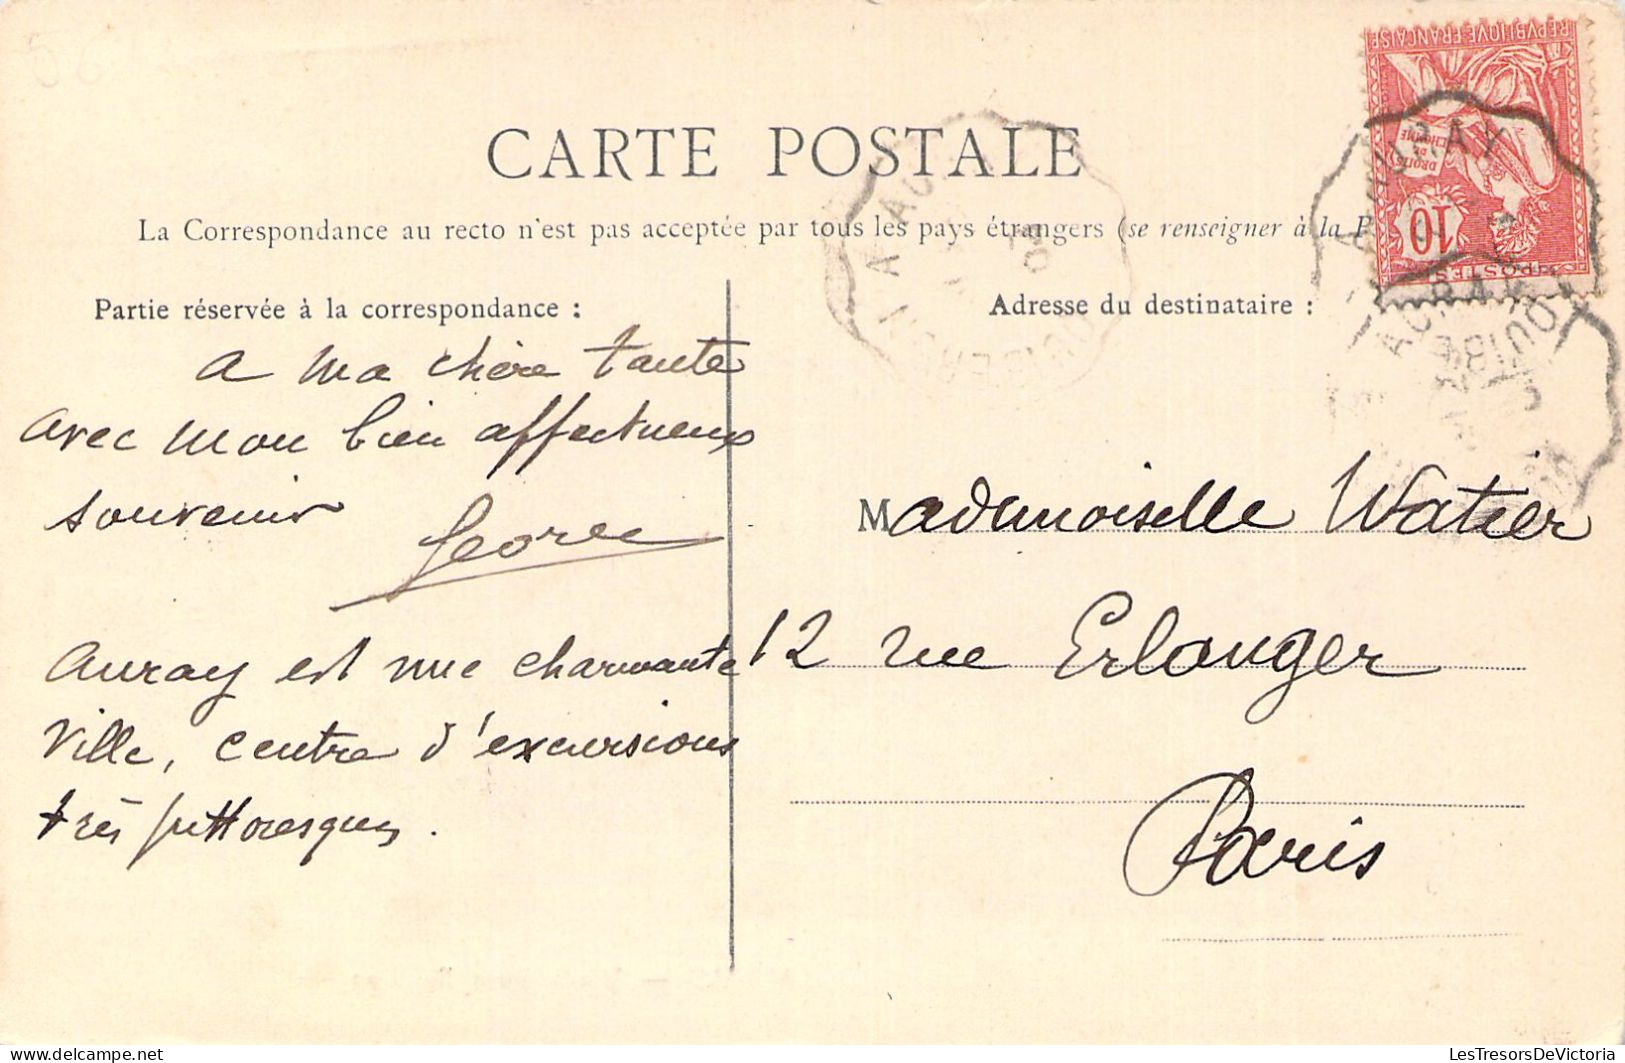 CARTE POSTALE
La Correspondance au recto n'est pas acceptée par tous les pays étrangers (se renseigner à la P
Partie réservée à la correspondance :
a ma chère tante
avec mon bien affectueux
souvenir
Auray est une charmante
ville, centre d'excursions
très pittoresques.
Adresse du destinataire :
Mademoiselle Watier
12 rue Erlanger
Paris
REPVBLIQVE FRANÇAISE
DROITS
DE
L'HOMME
10
POSTES
AURAY
QUIBERON A AURAY
04
LesTresorsDeVictoria
delcampe.net